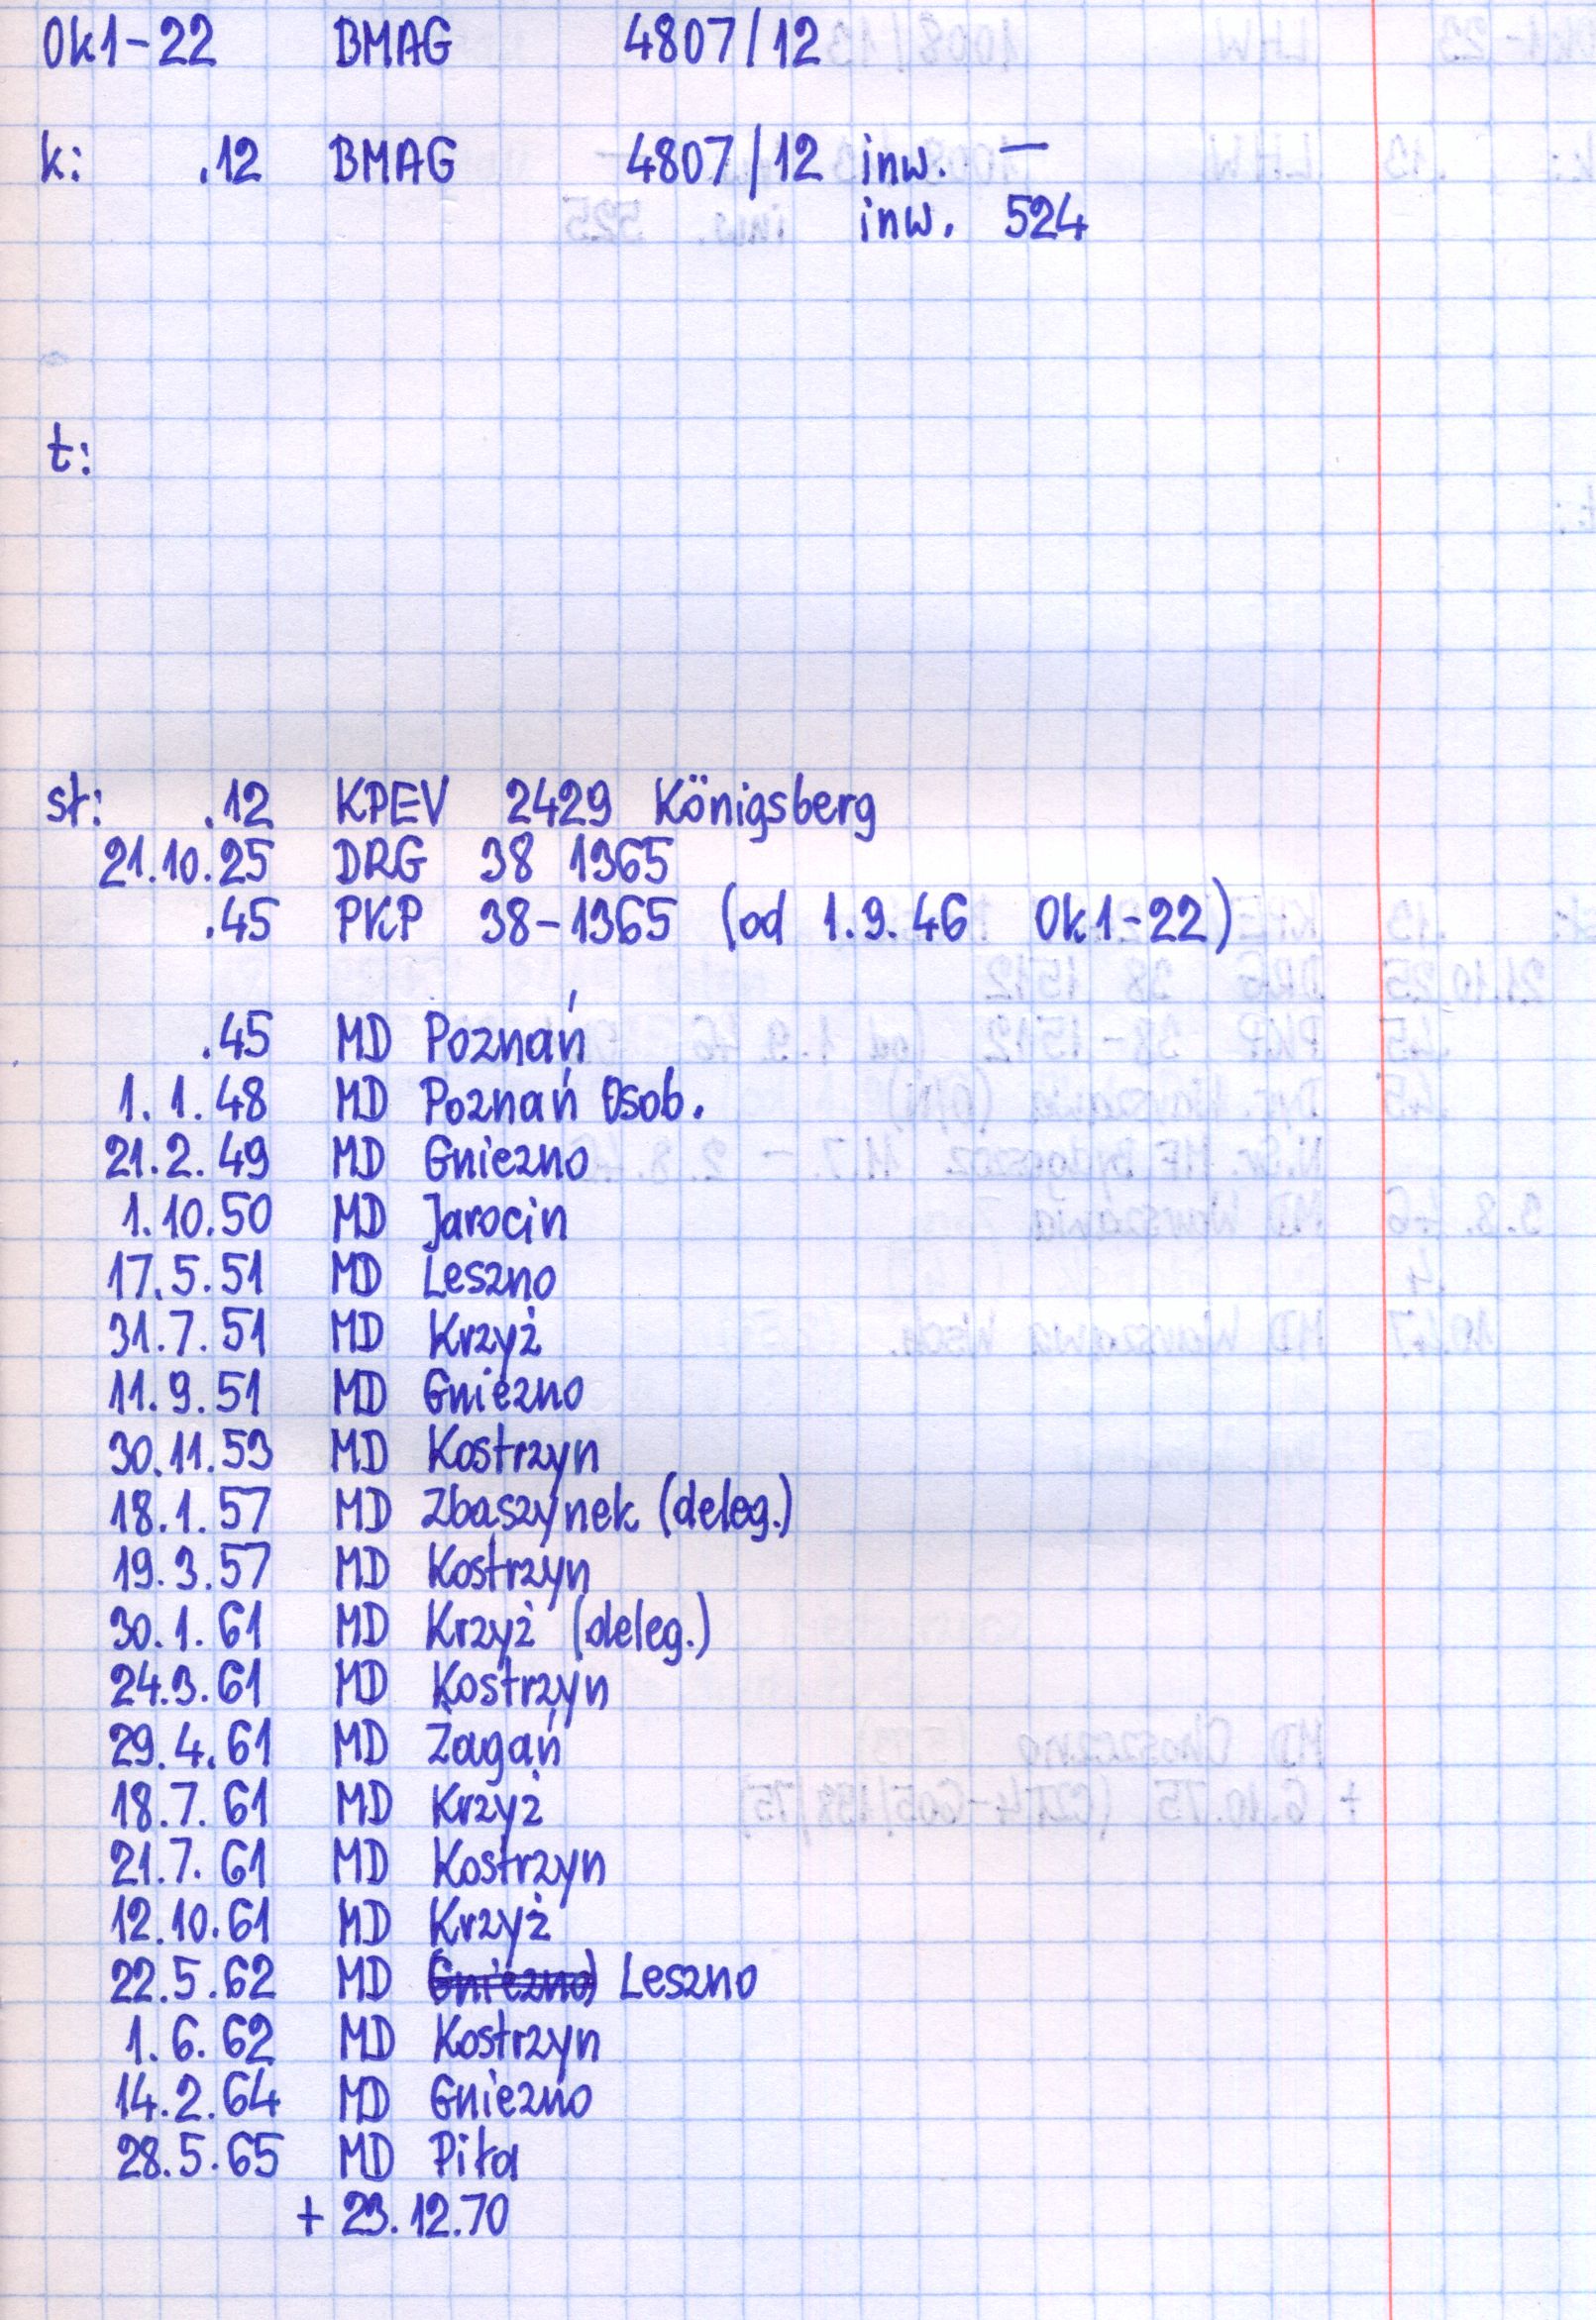 Ok1-22 BMAG 4807/12
k: .12 BMAG 4807/12 inw. —
inw. 524
t:
st: .12 KPEV 2429 Königsberg
21.10.25 DRG 38 1365
.45 PKP 38-1365 (od 1.9.46 Ok1-22)
.45 MD Poznań
1.1.48 MD Poznań Osob.
21.2.49 MD Gniezno
1.10.50 MD Jarocin
17.5.51 MD Leszno
31.7.51 MD Krzyż
11.9.51 MD Gniezno
30.11.53 MD Kostrzyn
18.1.57 MD Zbaszynek (deleg.)
19.3.57 MD Kostrzyn
30.1.61 MD Krzyż (deleg.)
24.3.61 MD Kostrzyn
29.4.61 MD Żagań
18.7.61 MD Krzyż
21.7.61 MD Kostrzyn
12.10.61 MD Krzyż
22.5.62 MD (Gniezno) Leszno
1.6.62 MD Kostrzyn
14.2.64 MD Gniezno
28.5.65 MD Piła
+ 23.12.70